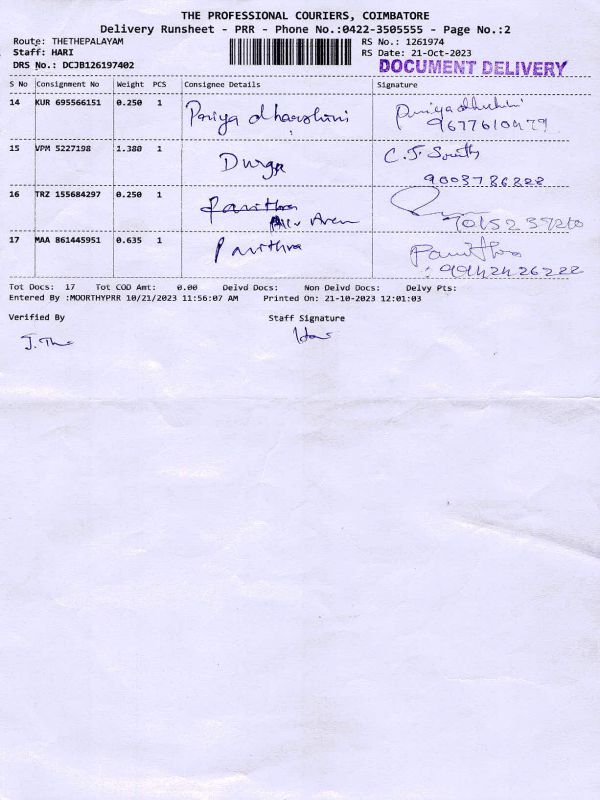 THE PROFESSIONAL COURIERS, COIMBATORE
Delivery Runsheet - PRR - Phone No.:0422-3505555 - Page No.:2
Route: THETHEPALAYAM
RS No.: 1261974
Staff: HARI
RS Date: 21-Oct-2023
DRS No.: DCJB126197402
DOCUMENT DELIVERY
S No Consignment No Weight PCS Consignee Details Signature
14 KUR 695566151 0.250 1 Priya dharshini
15 VPM 5227198 1.380 1 Durga
9003786222
16 TRZ 155684297 0.250 1 Pavithra
17 MAA 861445951 0.635 1 Pavithra Pavithra
: 9942426222
Tot Docs: 17 Tot COD Amt: 0.00 Delvd Docs: Non Delvd Docs: Delvy Pts:
Entered By :MOORTHYPRR 10/21/2023 11:56:07 AM Printed On: 21-10-2023 12:01:03
Verified By Staff Signature